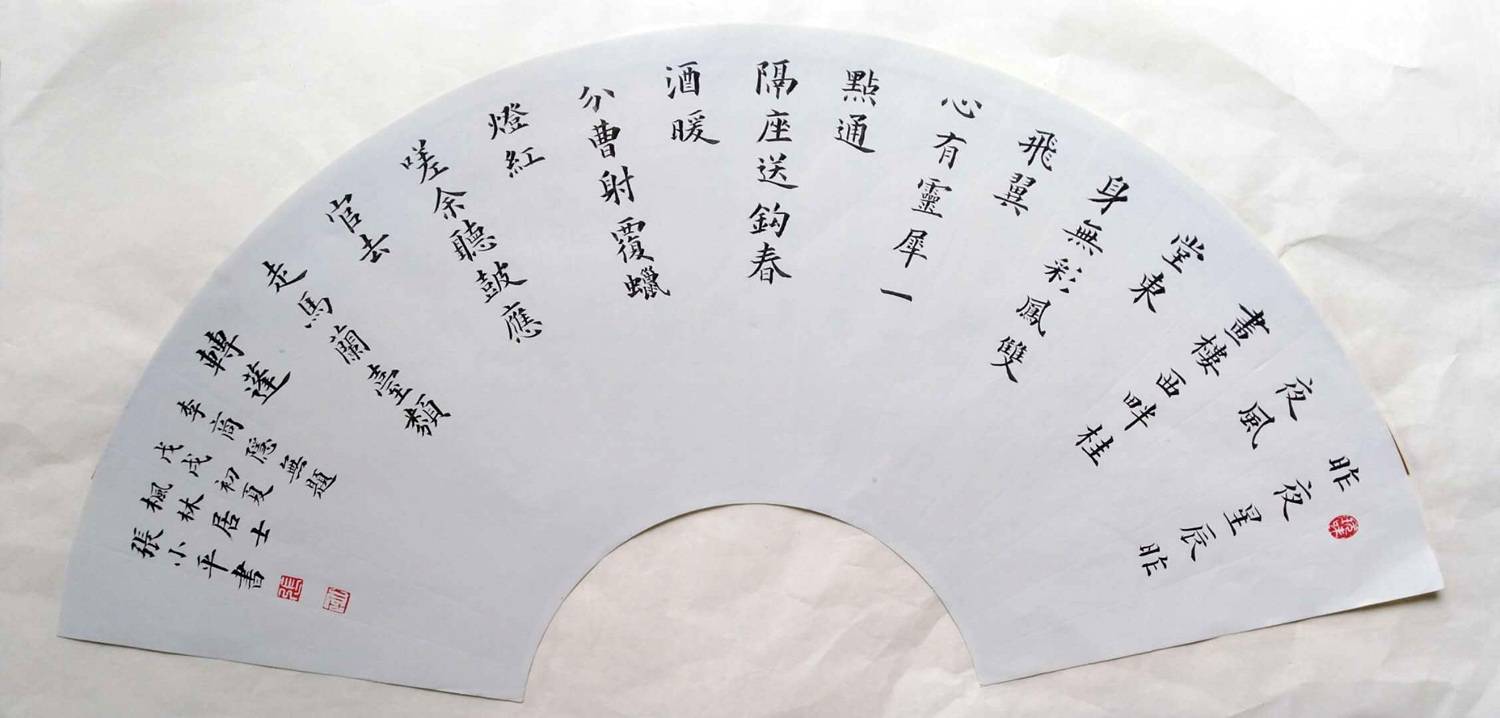 昨夜星辰昨
夜風
畫樓西畔桂
堂東
身無彩鳳雙
飛翼
心有靈犀一
點通
隔座送鈎春
酒暖
分曹射覆蠟
燈紅
嗟余聽鼓應
官去
走馬蘭臺類
轉蓬
李商隱無題
戊戌初夏
楓林居士
張小平書